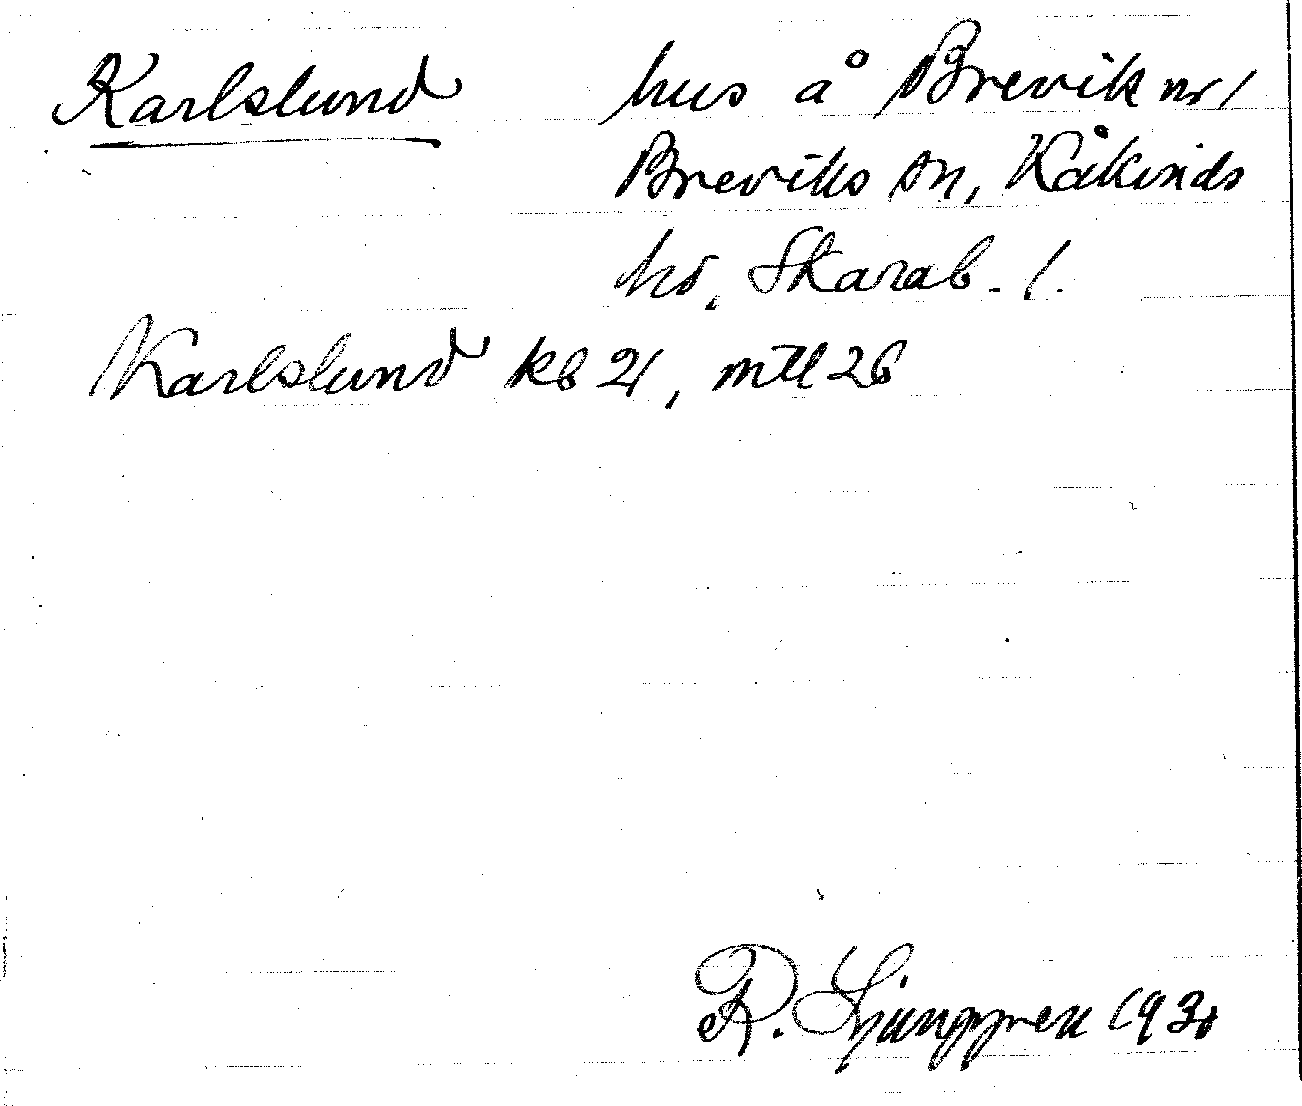 Karlslund hus å Brevik nr 1
Breviks sn, Kåkinds
hd, Skarab. l.
Karlslund kb 21, mtl 26
R. Ljunggren 193